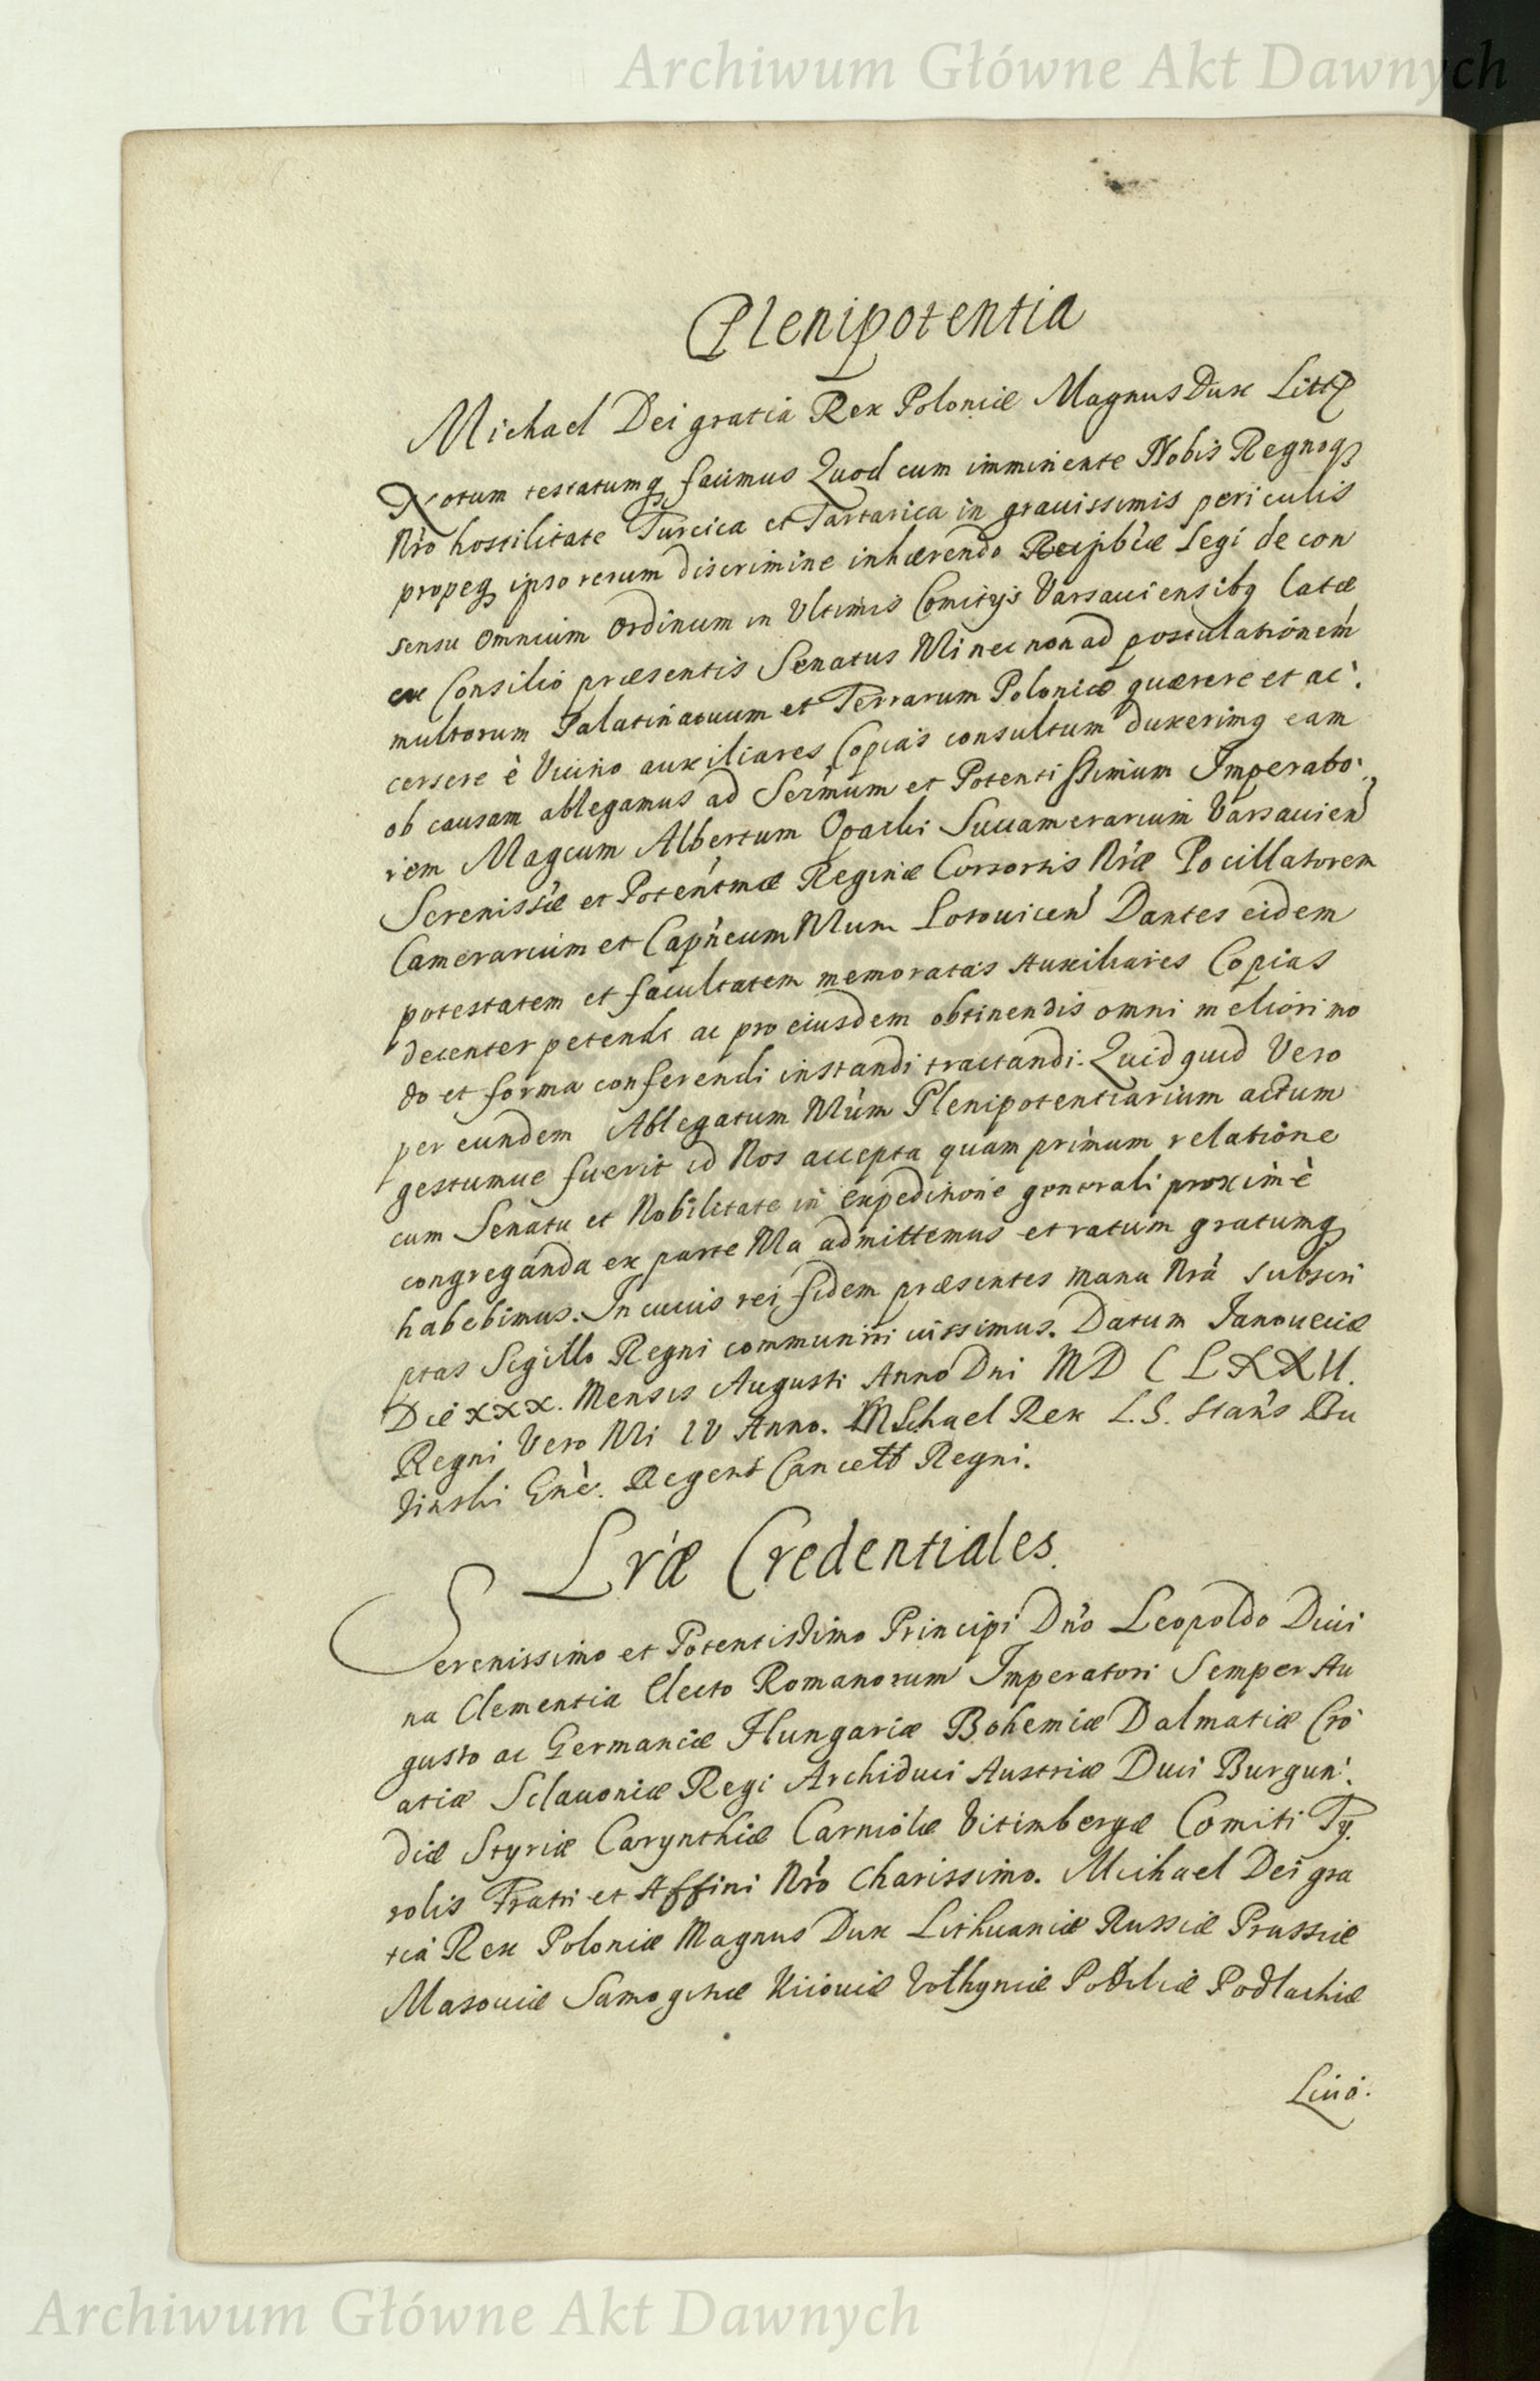 Archiwum Główne Akt Dawnych
Plenipotentia
Michael Dei gratia Rex Poloniæ Magnus Dux Litt
Notum testatumq facimus Quod cum imminente Nobis Regnoq
Nro hostilitate Turcica et Tartarica in grauissimis periculis
propeq ipso rerum discrimine inhærendo Reipbcæ Legi de con
sensu omnium ordinum in Ultimis Comitijs Varsauiensibq latæ
ex Consilio præsentis Senatus Nri nec non ad postulationem
multorum Palatinatuum et Terrarum Poloniæ quærere et ac
cersere è Vicino auxiliares Copias consultum duxerimq eam
ob causam ablegamus ad Sermum et Potentissimum Imperato
rem Magcum Albertum Opacki Succamerarium Varsauien
Sereniss'æ et Poten'tmæ Reginæ Consortis Nræ Pocillatorem
Camerarium et Capneum Nrum Lotouicen Dantes eidem
potestatem et facultatem memoratas Auxiliares Copias
decenter petendi ac pro eiusdem obtinendis omni meliori mo
do et forma conferendi instandi tractandi. Quidquid Vero
per eundem Ablegatum Nrum Plenipotentiarium actum
gestumue fuerit id Nos accepta quam primum relatione
cum Senatu et Nobilitate in expeditione generali proximè
congreganda ex parte Nra admittemus et ratum gratumq
habebimus. In cuius rei fidem præsentes manu Nra subscri
ptas Sigillo Regni communiri iussimus. Datum Janoueciæ
Die XXX. Mensis Augusti Anno Dni MD C LXXII.
Regni Vero Nri IV Anno. Michael Rex L.S. Stan's Bu
żinski Regent Cancell Regni.
Lræ Credentiales.
Serenissimo et Potentissimo Principi Dno Leopoldo Diui
na Clementia Electo Romanorum Imperatori Semper Au
gusto ac Germaniæ Hungariæ Bohemiæ Dalmatiæ Cro
atiæ Sclauoniæ Regi Archiduci Austriæ Duci Burgun
diæ Styriæ Carynthiæ Carniolæ Vitimbergæ Comiti Ty
rolis Fratri et Affini Nro Charissimo. Michael Dei gra
tia Rex Poloniæ Magnus Dux Lithuaniæ Russiæ Prussiæ
Masouiæ Samogitiæ Kiiouiæ Volhyniæ Podoliæ Podlachiæ
Liuo.
Archiwum Główne Akt Dawnych